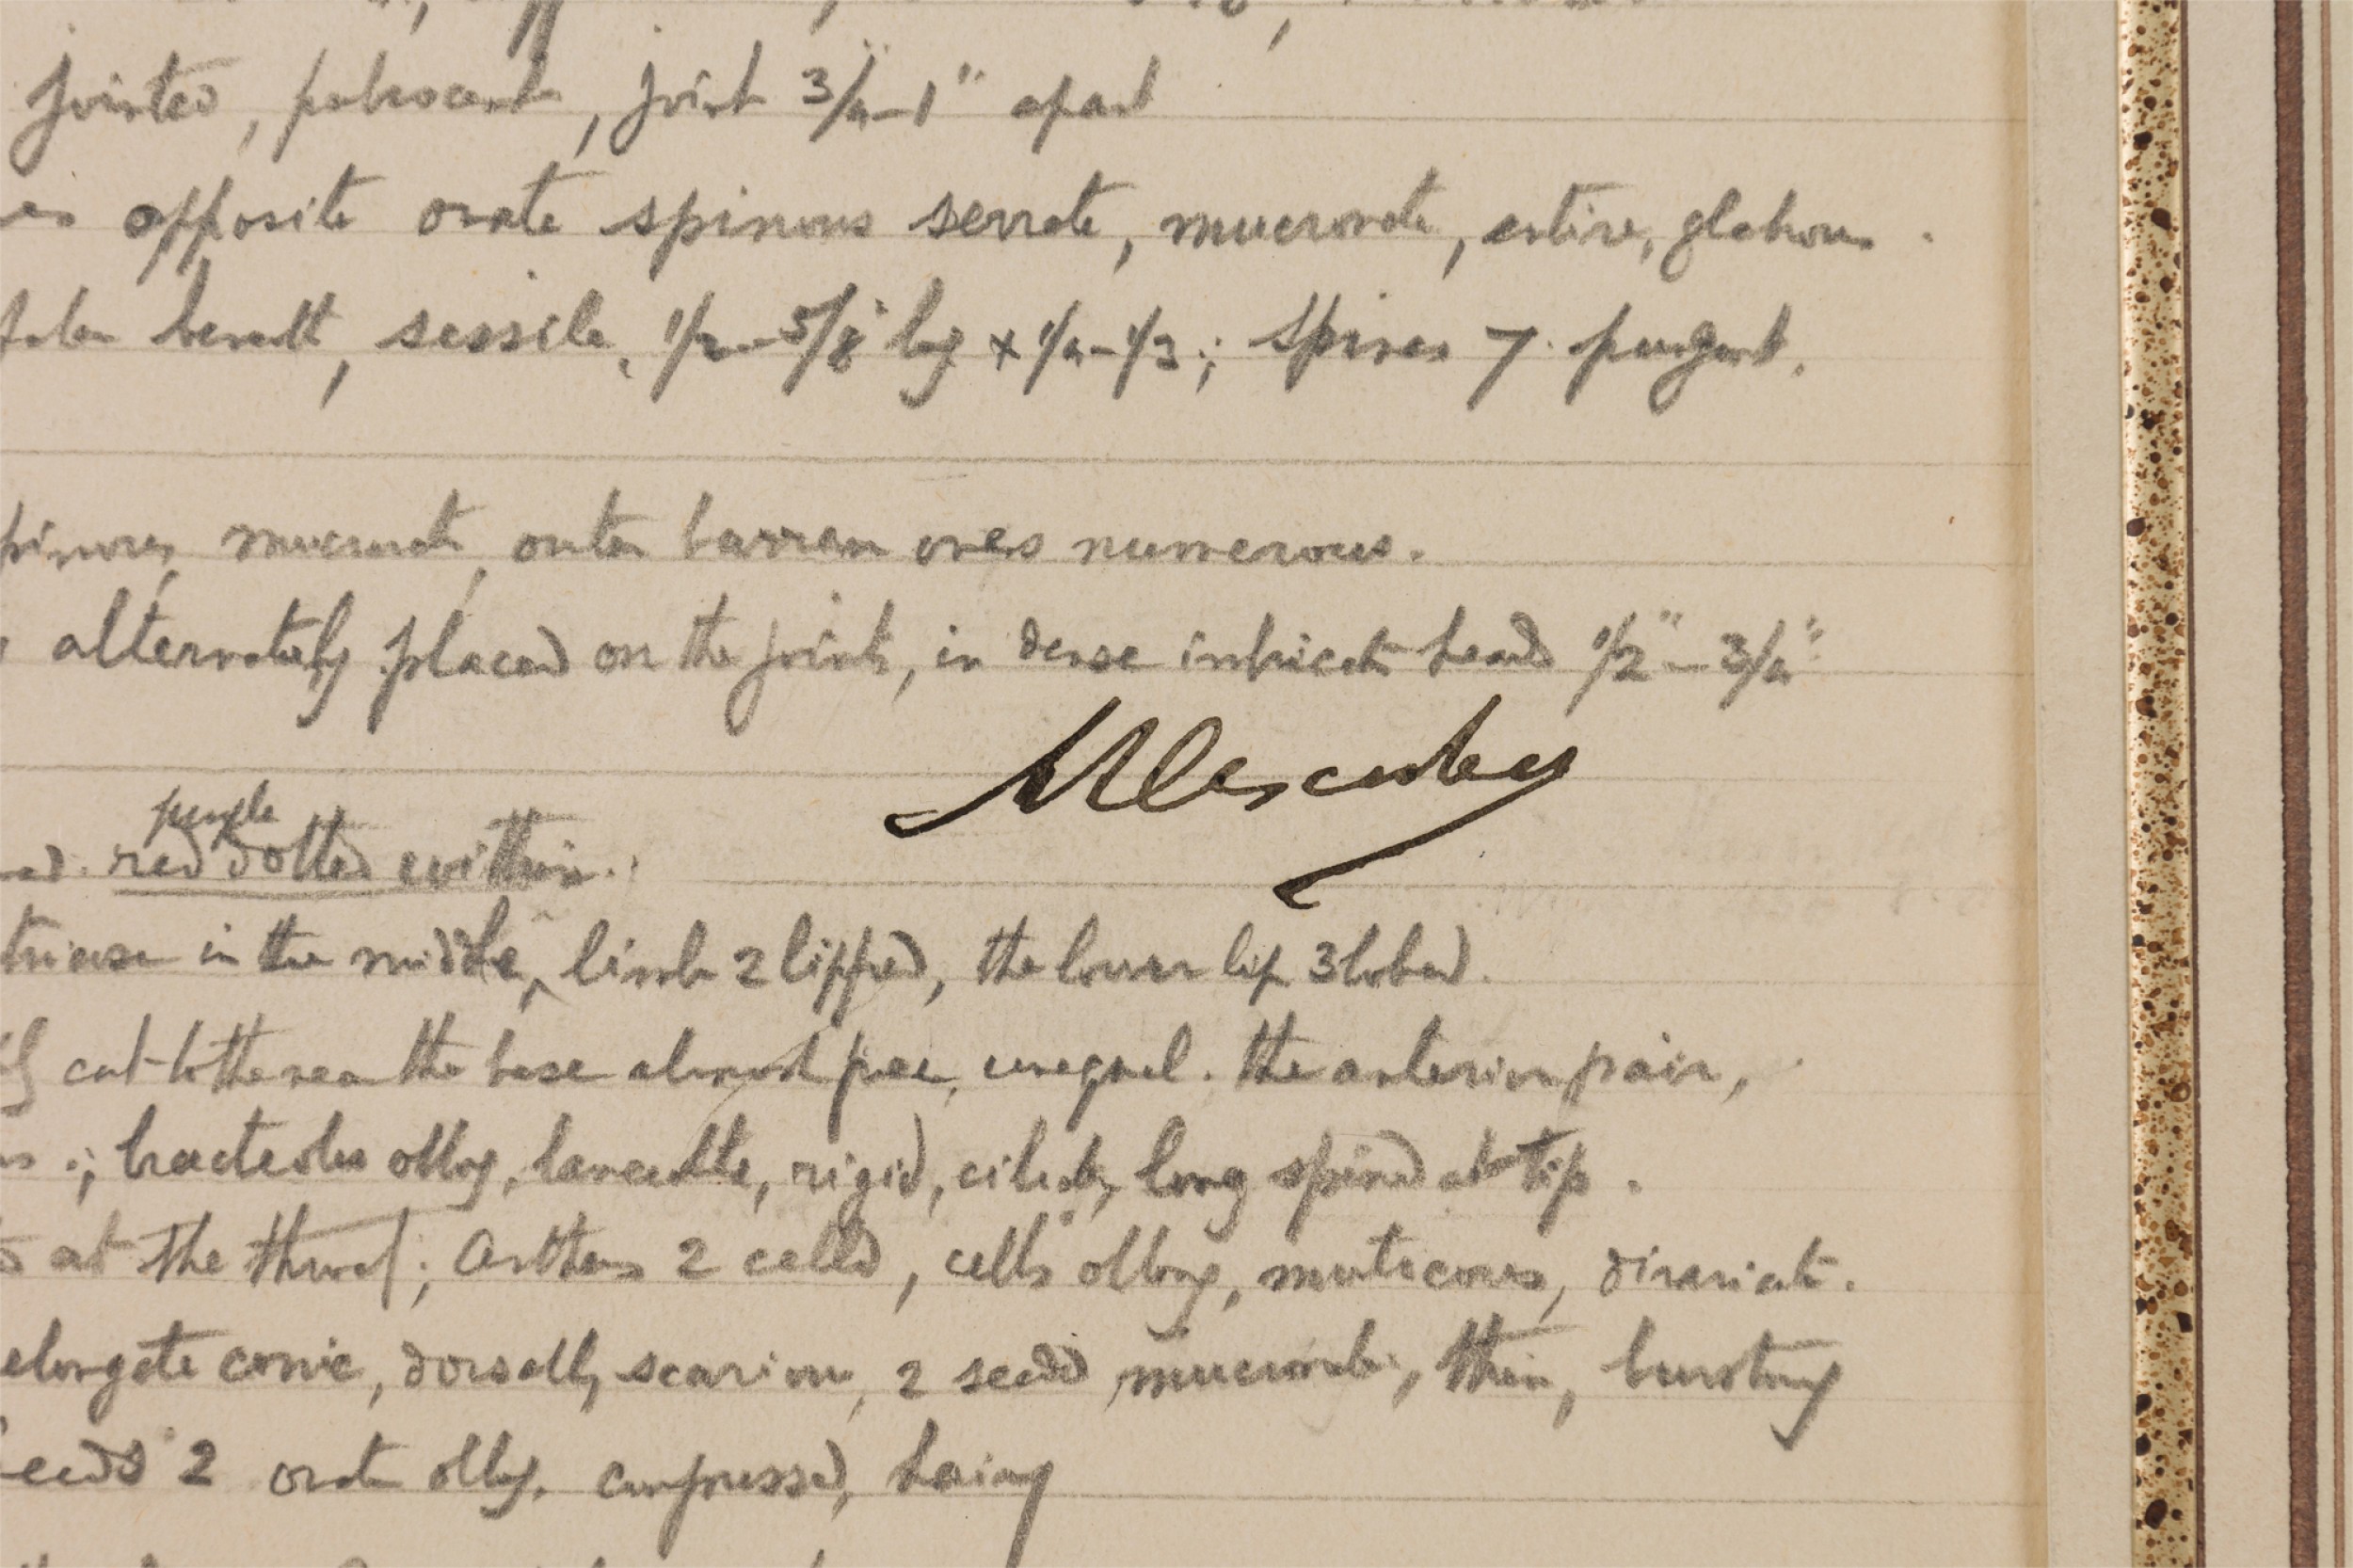 jointed, pubescent, joint 3/4-1" apart
opposite ovate spinous serrate, mucronate, entire, glabrous.
beneath, sessile, 1/2-5/8" long × 1/4-1/3; Spines 7. pungent.
mucronate, outer barren ones numerous.
alternately placed on the joints, in dense intricate heads 1/2"-3/4"
purple
red dotted within.
in the middle, limb 2 lipped, the lower lip 3 lobed.
cut to the near the base almost free, unequal. the anterior pair,
; bracteoles oblong, lanceolate, rigid, ciliate, long spined at tip.
at the throat; Anthers 2 celled, cells oblong, muticous, divaricate.
elongate conic, dorsally scarious, 2 seeded, mucronate, thin, bursting
seeds 2 ovate oblong, compressed, being